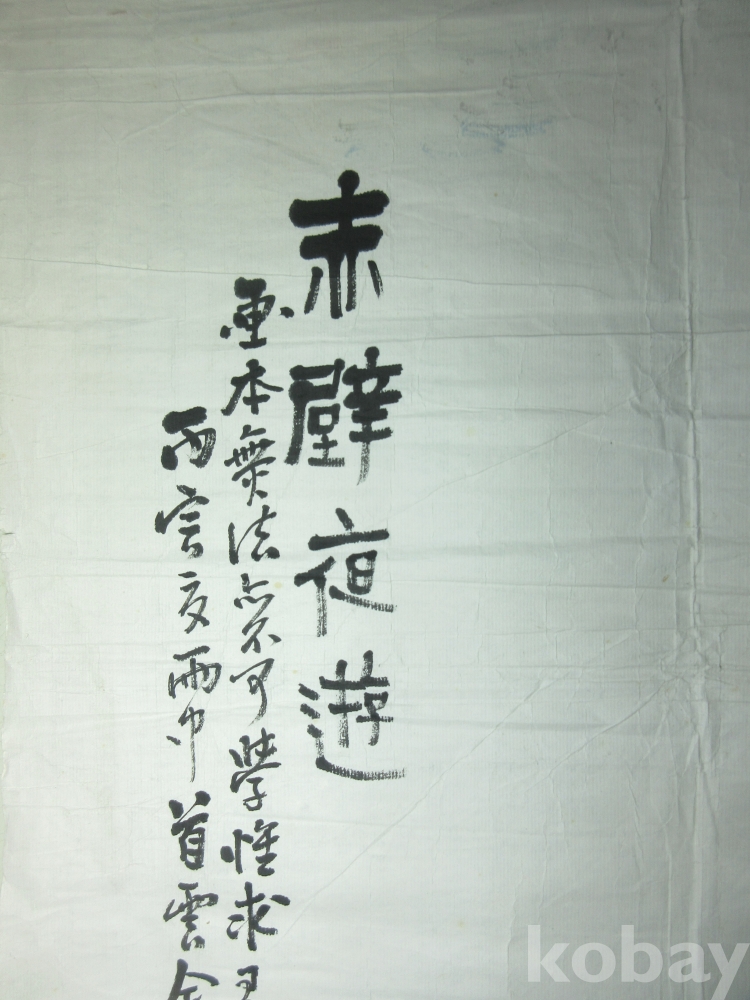 赤壁夜遊
畫本無法亦不可學惟求
丙寅夏雨中首雲金
kobay